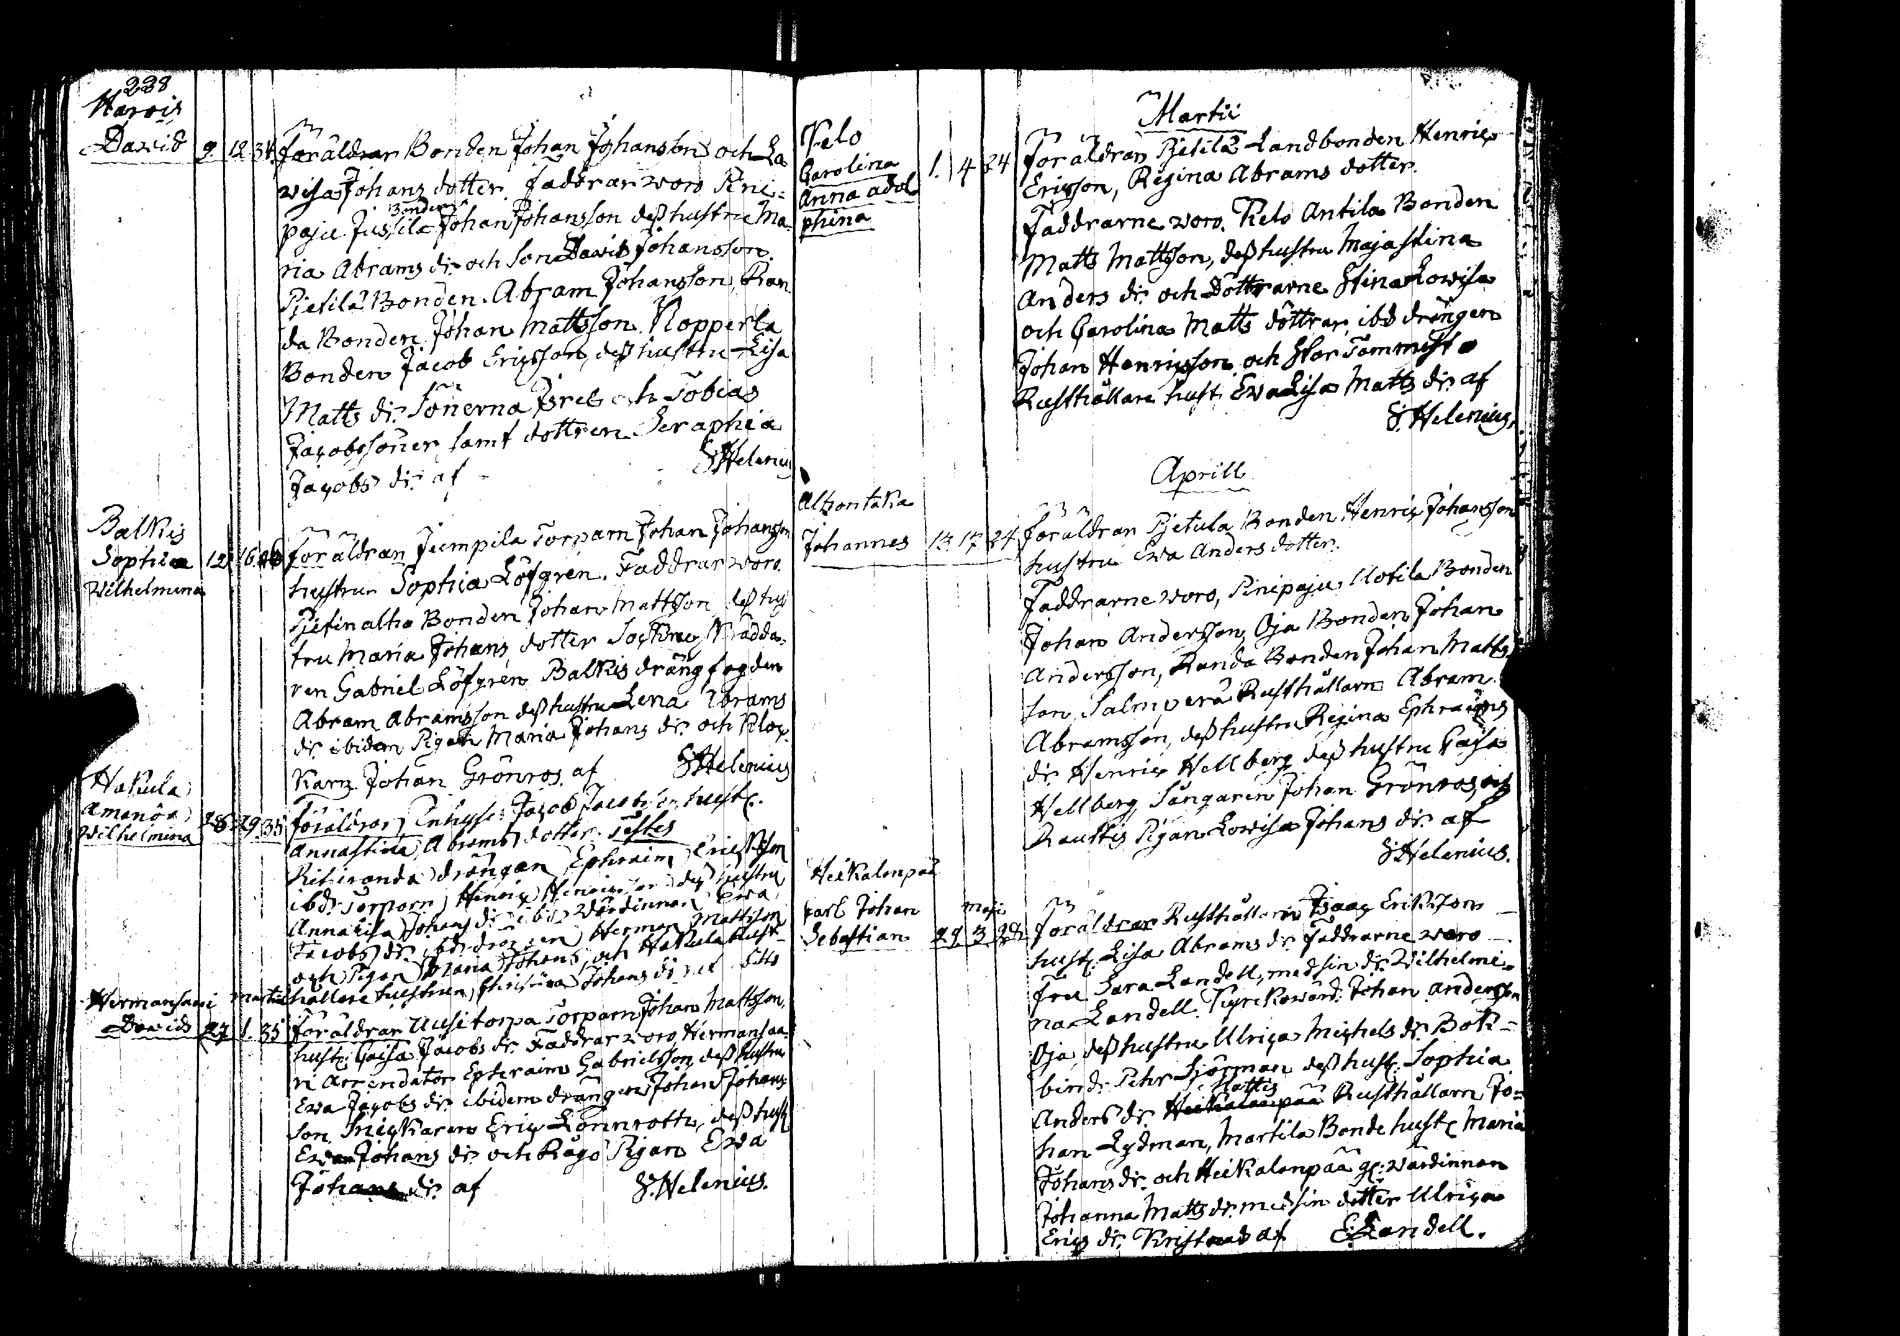 228
Harois
David 9. 12 34 Föräldrar Bonden Johan Johansson och Lo
visa Johans dotter. Faddrar woro Pini-
Bonden
paju Jussila Johan Johansson deß hustru Ma-
ria Abrams dr och Son David Johansson.
Pietilä Bonden Abram Johansson, Ran
da Bonden Johan Mattsson. Nopperla
Bonden Jacob Ericsson, deß hustru Lisa
Matts dr. Sönerna Isrel och Tobias
Jacobssöner samt dottren Seraphia
Jacobs dr. af
S Helenius
Balkis
Sophia 12 16 Föräldrar Jumpila Torparn Johan Johansson
Wilhelmina hustrun Sophia Löfgren. Faddrar woro
Pietinalho Bonden Johan Mattsson deß hus
tru Maria Johans dotter Sockne Skrädda-
ren Gabriel Löfgren Balkis drängfogden
Abram Abramsson deß hustru Lena Abrams
dr ibidem Pigan Maria Johans dr. och Kloc-
karn Johan Grönros af S Helenius
Hakula
Amanda
Wilhelmina 28. 29. 35 föräldrar, Jacob Jacobsson hustr.
Annastina Abrams dotter. Testes
Rihiranda drängen Ephraim Ericsson
ibd. Torparn Henric Henricsson deß hustru
Annalisa Johans dr. ibd Wärdinnan Ewa
Jacobs dr. ibd. drängen Herman Mattsson
och Pigan Maria Johans, och Hakula Rust-
hållare hustrun Christina Johans dr af SHs
Hermansaari Martii
David 27 1. 35 Föräldrar Uusitorpa Torparn Johan Mattsson,
hustr. Caisa Jacobs dr. Faddrar woro Hermansaa-
ri Arrendator Ephraim Gabrielsson, deß hustru
Ewa Jacobs dr. ibidem drängen Johan Johans
son Snickaren Eric Lönnroth, deß hust
Ewa Johans dr och Rågö Pigan Ewa
Johans dr. af S. Helenius.
Martii
Kelo
Carolina 1. 4 24 Föräldrar Pietilä Landbonden Henric
Anna adol Ericsson, Regina Abrams dotter.
phina Faddrarne woro. Kelo Antila Bonden
Matts Mattsson, deß hustru Majastina
Anders dr. och Döttrarne Stina Lowisa
och Carolina Matts döttrar, ibd drängen
Johan Henricsson och Stor Tommist
Rusthållare hust. Ewa Lisa Matts dr. af
S. Helenius.
Aprill
Alhontaka
Johannes 13. 17. 24 föräldrar Pietula Bonden Henric Johansson
hustru Ewa Anders dotter.
Faddrarne woro, Pinipaju Uotila Bonden
Johan Andersson, Oja Bonden Johan
Andersson, Randa Bonden Johan Matts
son, Salmperä Rusthållarn Abram
Abramsson, deß hustru Regina Ephraims
dr Henric Hellberg deß hustru Caisa
Hellberg Sångaren Johan Grönros och
Rautkis Pigan Lowisa Johans dr. af
S Helenius.
Heikalanpää
Carl Johan maji
Sebastian 29 3 Föräldrar Rusthållarn Isaac Ericksson
hustr. Lisa Abrams dr. Faddrarne woro
fru Sara Landell, med sin dr. Wilhelmi-
na Landell. Johan Andersson
Oja, deß hustru Ulrica Michels dr. Bok-
bind. Pehr Sjöman deß hust. Sophia
Hattis
Anders dr. Heikalanpää Rusthållarn Jo-
han Lydman, Martila Bonde hustr Maria
Johans dr. och Heikalanpää gl: wärdinnan
Johanna Matts dr. med sin dotter Ulrica
Erics dr. Kristnad af E: Landell.